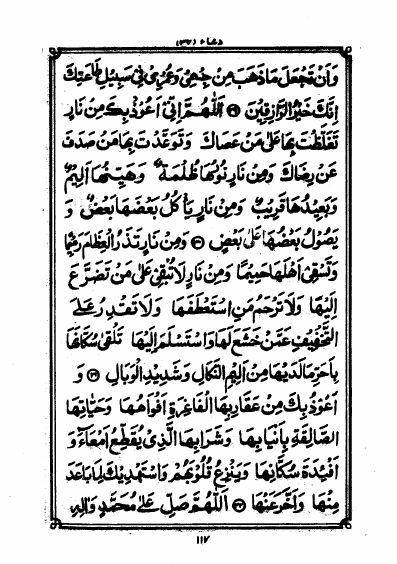 دعاء (٣٢)
وَاَنْ تَجْعَلَ مَا ذَهَبَ مِنْ جِسْمِيْ وَعُمُرِيْ فِيْ سَبِيْلِ طَاعَتِكَ
اِنَّكَ خَيْرُ الرَّازِقِيْنَ ۝ اَللّٰهُمَّ اِنِّيْ اَعُوْذُ بِكَ مِنْ نَارٍ
تَغَلَّظْتَ بِهَا عَلٰى مَنْ عَصَاكَ وَتَوَعَّدْتَ بِهَا مَنْ صَدَفَ
عَنْ رِضَاكَ وَمِنْ نَارٍ نُوْرُهَا ظُلْمَةٌ وَهَيِّنُهَا اَلِيْمٌ
وَبَعِيْدُهَا قَرِيْبٌ وَمِنْ نَارٍ يَاْكُلُ بَعْضَهَا بَعْضٌ وَ
يَصُوْلُ بَعْضُهَا عَلٰى بَعْضٍ ۝ وَمِنْ نَارٍ تَذَرُ الْعِظَامَ رَمِيْمًا
وَتَسْقِيْ اَهْلَهَا حَمِيْمًا وَمِنْ نَارٍ لَا تُبْقِيْ عَلٰى مَنْ تَضَرَّعَ
اِلَيْهَا وَلَا تَرْحَمُ مَنِ اسْتَعْطَفَهَا وَلَا تَقْدِرُ عَلَى
التَّخْفِيْفِ عَمَّنْ خَشَعَ لَهَا وَاسْتَسْلَمَ اِلَيْهَا تَلْقٰى سُكَّانَهَا
بِاَحَرِّ مَا لَدَيْهَا مِنْ اَلِيْمِ النَّكَالِ وَشَدِيْدِ الْوَبَالِ ۝ وَ
اَعُوْذُ بِكَ مِنْ عَقَارِبِهَا الْفَاغِرَةِ اَفْوَاهُهَا وَحَيَّاتِهَا
الصَّالِقَةِ بِاَنْيَابِهَا وَشَرَابِهَا الَّذِيْ يُقَطِّعُ اَمْعَاءَ وَ
اَفْئِدَةَ سُكَّانِهَا وَيَنْزِعُ قُلُوْبَهُمْ وَاَسْتَهْدِيْكَ لِمَا بَاعَدَ
مِنْهَا وَاَخَّرَ عَنْهَا ۝ اَللّٰهُمَّ صَلِّ عَلٰى مُحَمَّدٍ وَاٰلِهِ
١١٧